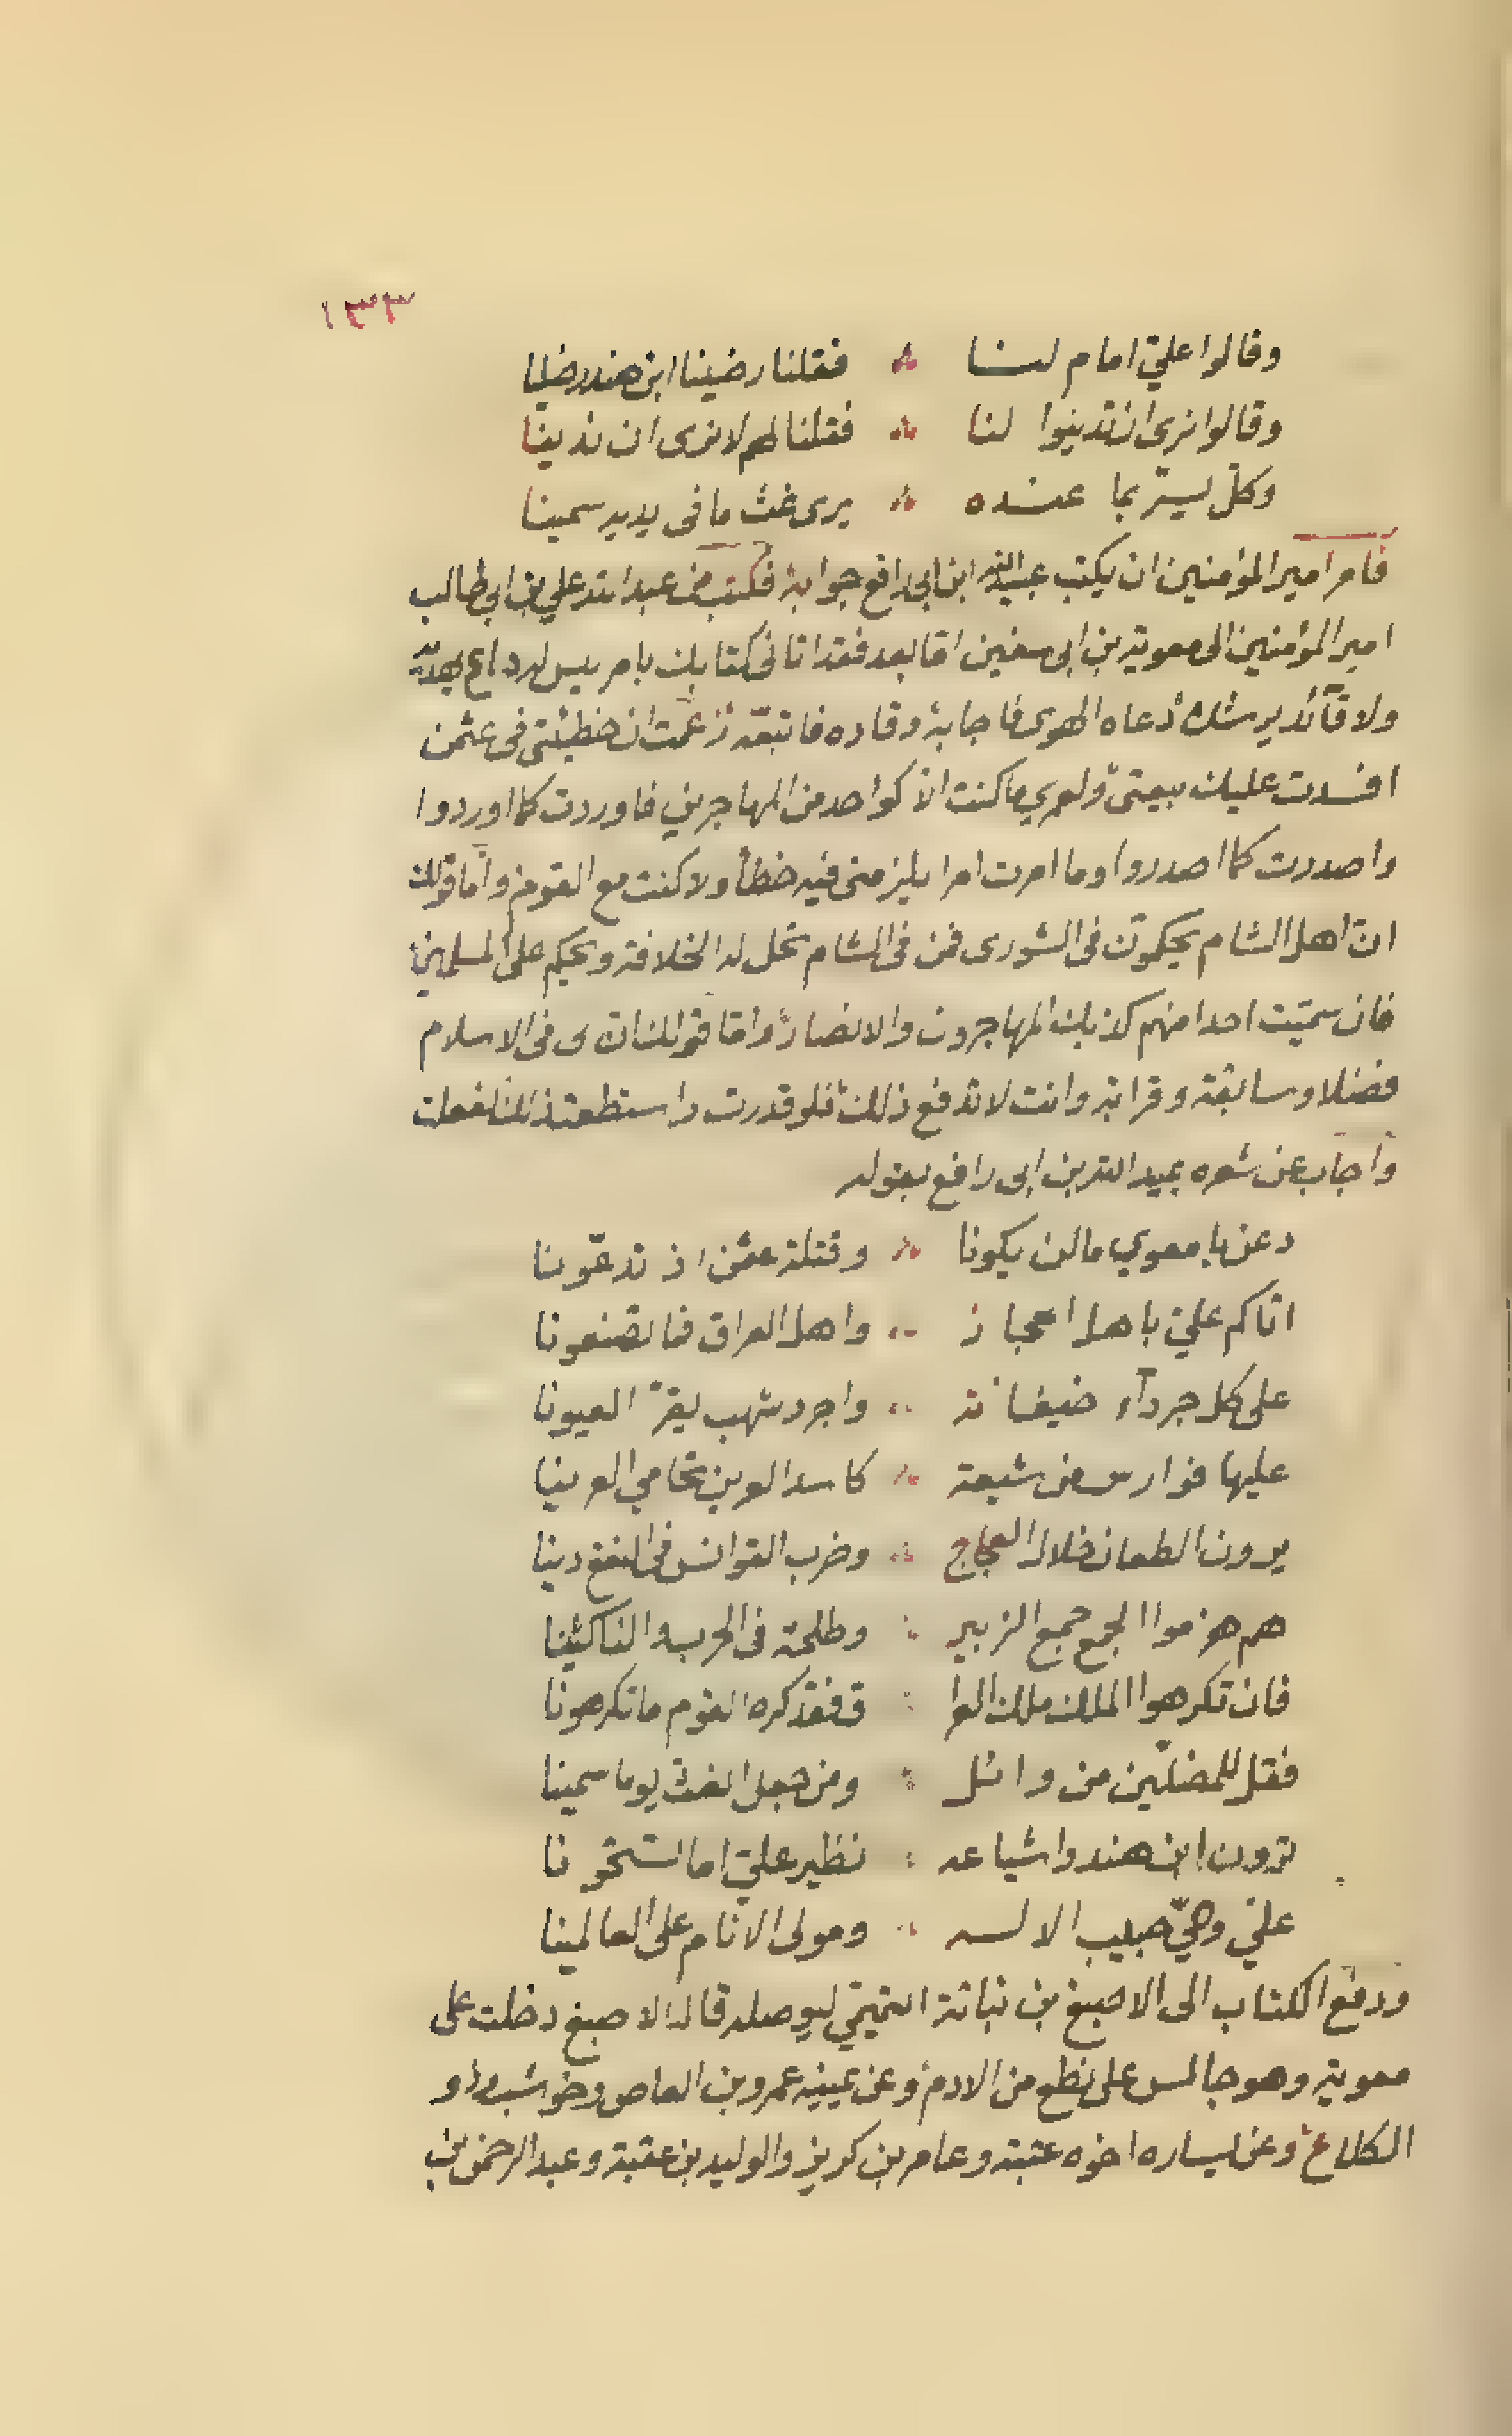 ١٣٣
وقالوا علي امام لنا ∴ فقلنا رضينا ابن هند رضينا
وقالوا نرى ان تدينوا لنا ∴ فقلنا لهم لا نرى ان ندينا
وكل يسرّ بما عنده ∴ يرى غث ما في يديه سمينا
فامر امير المؤمنين ان يكتب عبيدالله ابن ابي رافع جوابه فكتب من عبدالله علي بن ابي طالب
امير المؤمنين الى معوية بن ابي سفين اما بعد فقد اتاني كتابك بامر ليس له داع يهديه
ولا قائد يرشده دعاه الهوى فاجابه وقاده فاتبعه زعمت ان خطيئتي في عثمن
افسدت عليك بيعتي ولعمري ما كنت الا كواحد من المهاجرين فاوردت كما اوردوا
واصدرت كما اصدروا وما امرت امرا يلزمني فيه خطأ ولا كنت مع القوم واما قولك
ان اهل الشام يحكمون في الشورى فمن في الشام تحل له الخلافة ويحكم على المسلمين
فان سمّيت احدا منهم كذبك المهاجرون والانصار واما قولك ان لى فى الاسلام
فضلا وسابقة وقرابة وانت لا تدفع ذلك فلو قدرت واستطعت ذلك لفعلت
واجاب عن شعره عبيد الله بن ابى رافع بقوله
دعن يا معوي ما لن يكونا ∴ وقتلة عثمن اذ تدعونا
اتاكم علي باهل الحجاز ∴ واهل العراق فما تصنعونا
على كل جردآء خيفانة ∴ واجرد شهب يقرّ العيونا
عليها فوارس من شيعة ∴ كاسد العرين تحامي العرينا
يرون الطعان خلال العجاج ∴ وضرب القوانس في النقع دينا
هم هزموا الجمع جمع الزبير ∴ وطلحة في الحرب والناكثينا
فان تكرهوا الملك ملك العرا ∴ ق فقد كره القوم ما تكرهونا
فقل للمضلّين من وائل ∴ ومن جعل الغث يوما سمينا
ترون ابن هند واشياعه ∴ نظير علي اما تستحونا
علي وصيّ حبيب الاله ∴ ومولى الانام على العالمينا
ودفع الكتاب الى الاصبغ بن نباتة التميمي ليوصله قال الاصبغ دخلت على
معوية وهو جالس على نطع من الادم وعن يمينه عمرو بن العاص وحوشب وذو
الكلاع وعن يساره اخوه عتبة وعامر بن كريز والوليد بن عقبة وعبد الرحمن بن